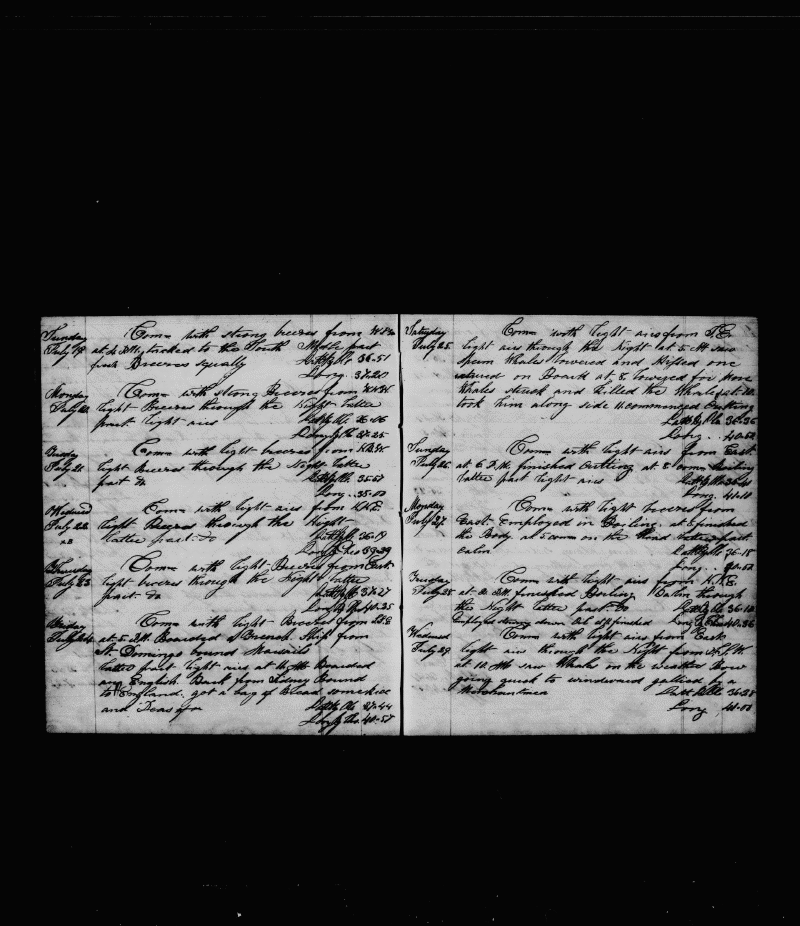 Sunday Coms with strong breezes from
July 19 at 4 PM tacked to the South Middle part
fresh Breezes squally Latt by Ob 36-51
Long. 37-20
Monday Coms with strong Breezes from
July 20 light Breezes through the Night Latter
part light airs Latt by Ob. 36-06
Long by Ch 37-25
Tuesday Coms with light breezes from
July 21 light Breezes through the Night latter
part do Latt by Ob 35-57
Long. 38-00
Wednesd Coms with light airs from
July 22 light Breezes through the Night
latter part do Latt by Ob 36-19
Long by Chro 39-39
Thursday Coms with light Breezes from East
July 23 light breezes through the Night latter
part do Latt by Ob 37-27
Long by Ch 40-35
Friday Coms with light Breezes from
July 24 at 5 PM. Boarded a French Ship from
St. Domingo bound Marseils
latter part light airs at Boarded
an English Bark from Sidney Bound
to England. got a bag of Bread some
and Latt by Ob 37-44
Long by Chr 40-57
Saturday Coms with light airs from S.E
July 25 light airs through the Night at 5 AM saw
Sperm Whales lowered and Kifled one
on Board at 8. lowered for more
Whales struck and killed the Whale at 10
took him along side 11 commenced Cutting
Latt by Ob 36-36
Long. 40-52
Sunday Coms with light airs from East
July 26 at 6 P.M. finished Cutting at 8 Boiling
latter part light airs Latt by Ob 36-41
Long. 41-10
Monday Coms with light breezes from
July 27 East. Employed in Boiling. at 5 finished
the Body at 5 coms on the Head latter part
calm Latt by Ob 36-15
Long. 40-52
Tuesday Coms with light airs from N.N.E
July 28 at 12 P.M. finished Boiling Calm through
the Night latter part do Latt by Ob 36-10
Employed stowing down Oil finished Long by Chro 40-36
Wednesd Coms with light airs from East
July 29 light airs through the Night from
at 10 AM saw Whales on the weather Bow
going quick to windward gallied by a
Merchantman Latt by Ob 36-28
Long. 41-00